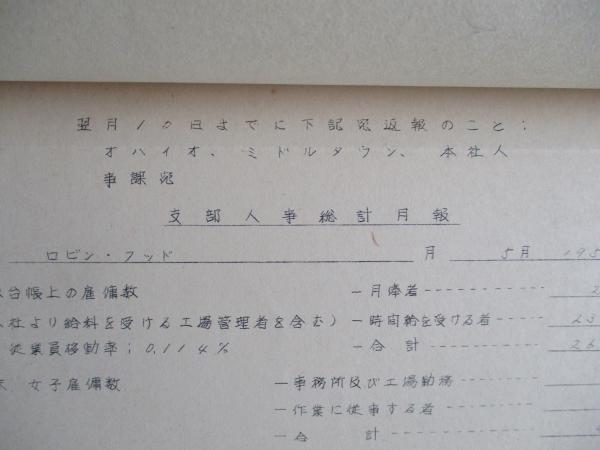 翌月10日までに下記宛返報のこと;
オハイオ、ミドルタウン、本社人
事課宛
支部人事総計月報
ロビン・フッド 月 5月 195
台帳上の雇傭数 ー月俸者 2
社より給料を受ける工場管理者を含む) ー時間給を受ける者 23
従業員移動率; 0.114% ー合計 26
女子雇傭数 ー事務所及び工場勤務
ー作業に従事する者
ー合 計